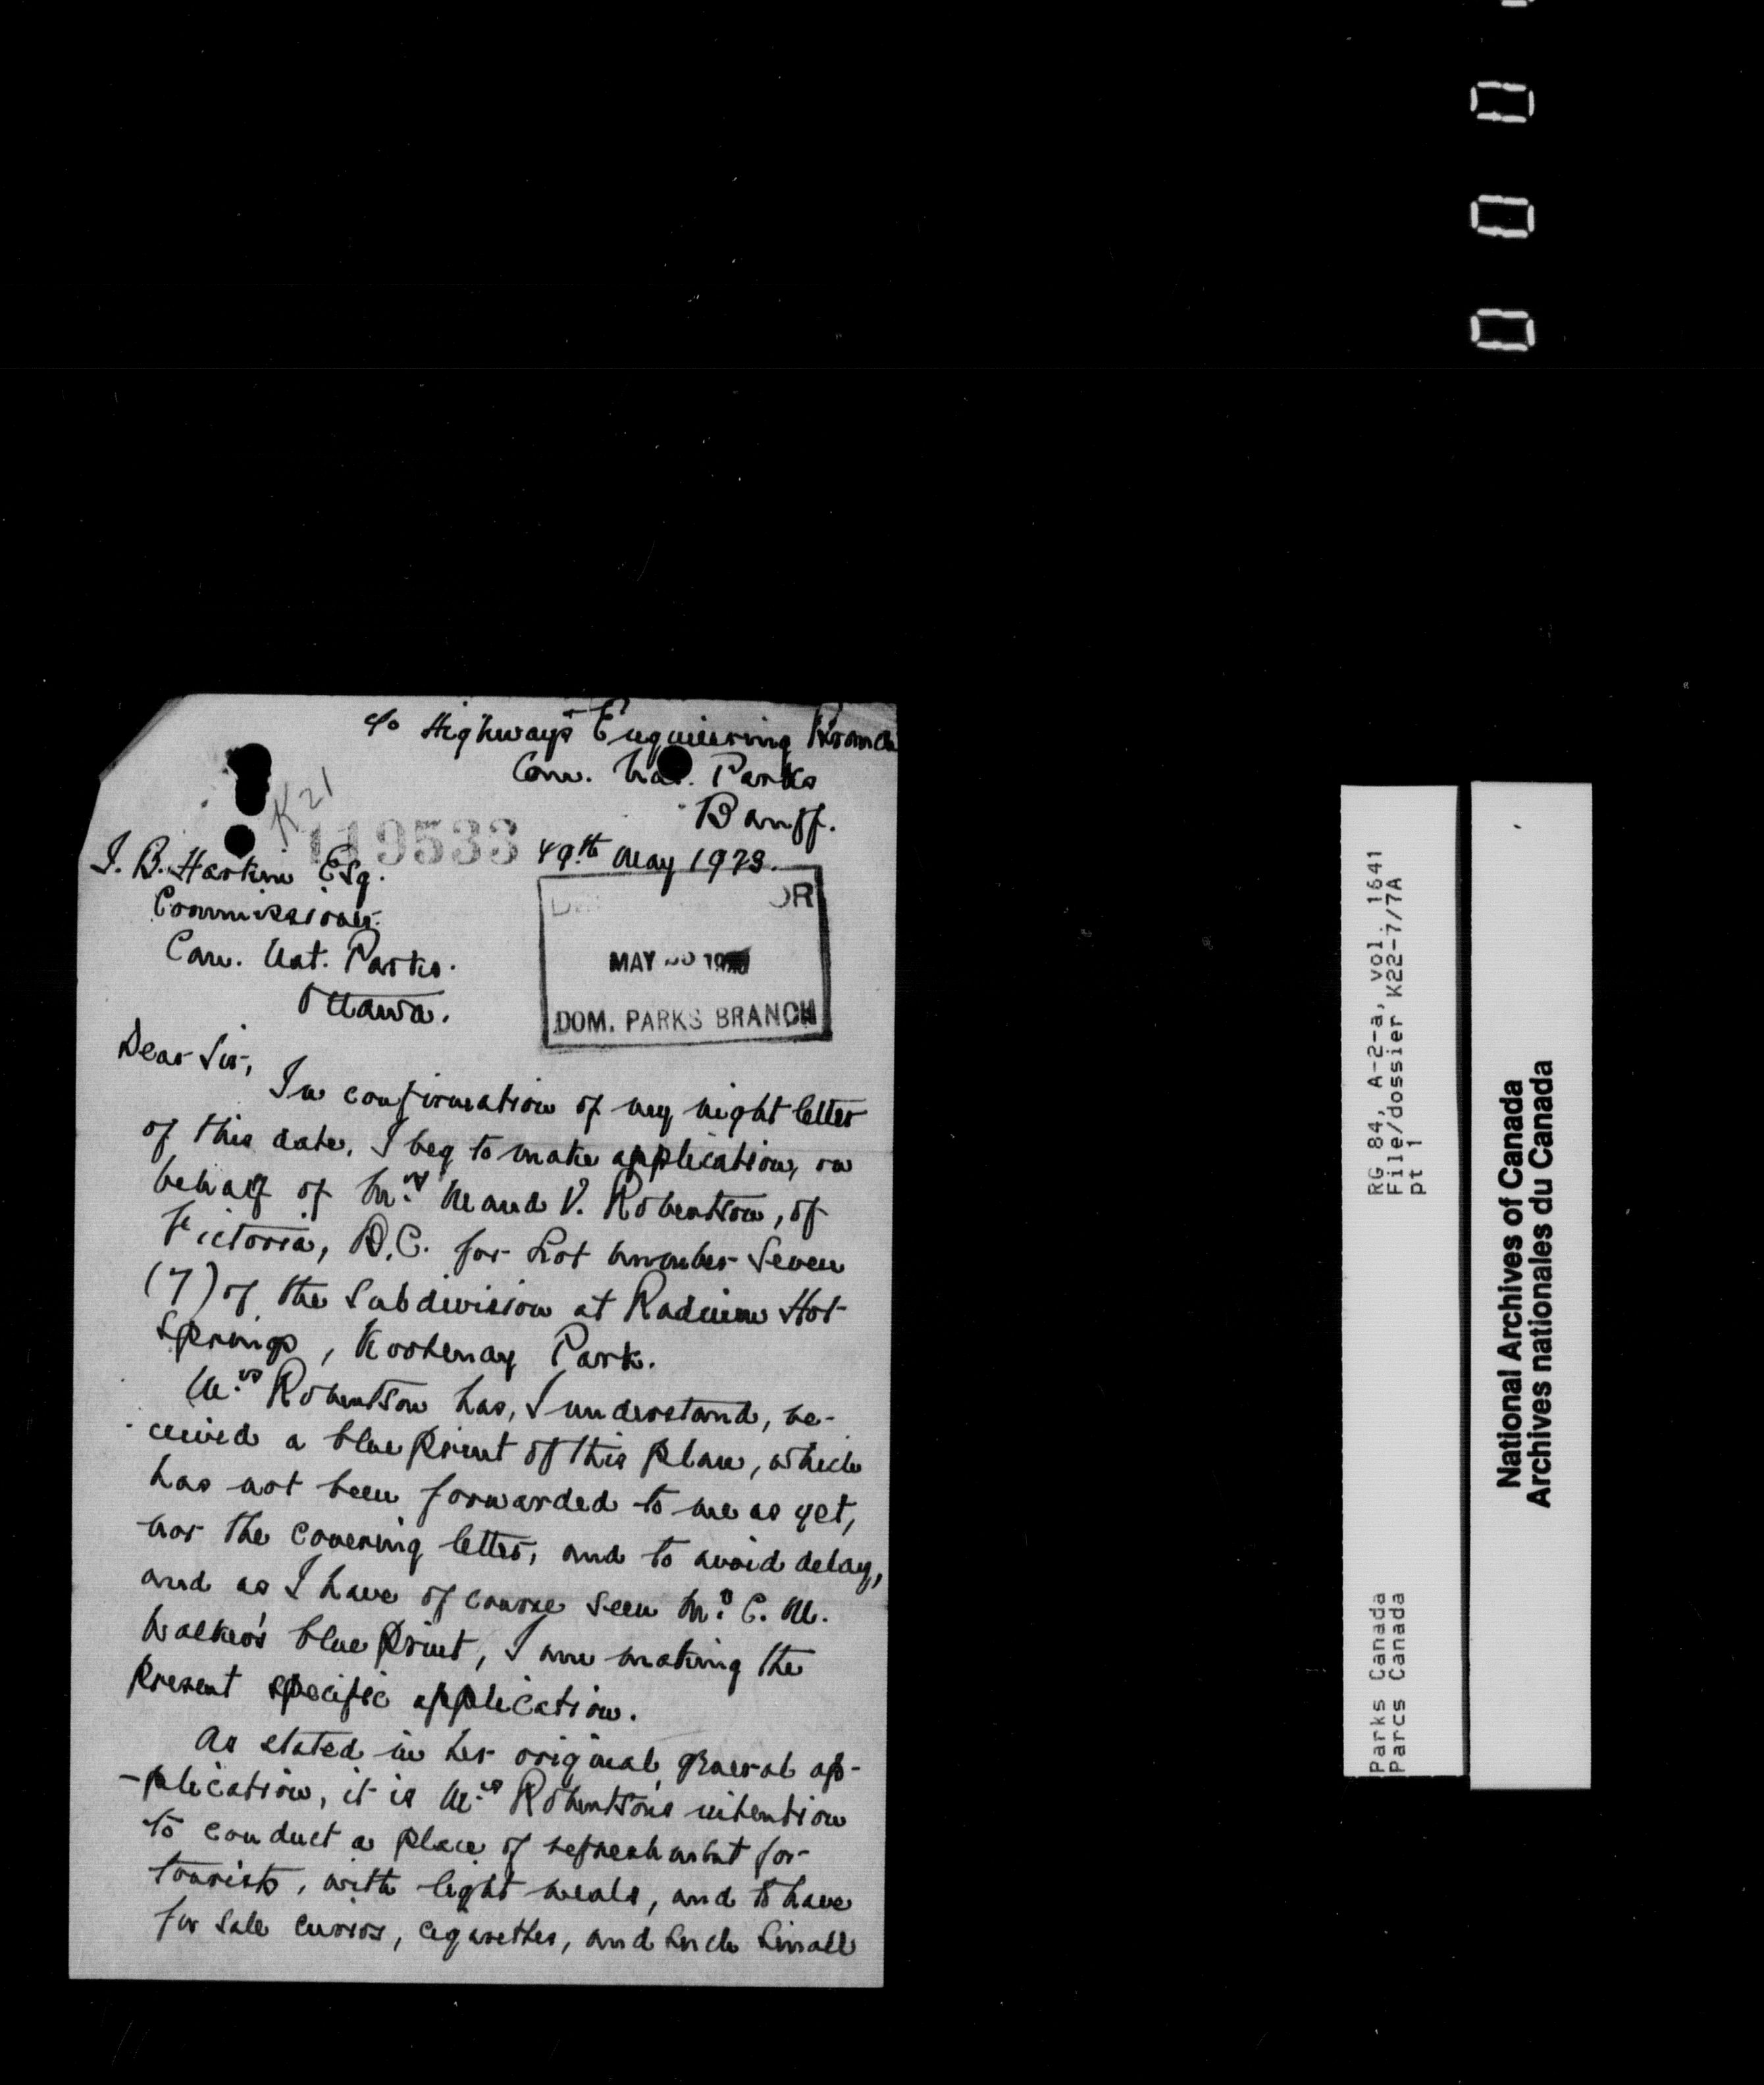 c/o Highways Engineering Branch
Can. Nat. Parks
Banff.
K21
119533
29th May 1923.
J. B. Harkin Esq.
Commissioner.
Can. Nat. Parks.
Ottawa.
OR
MAY 30 19
DOM. PARKS BRANCH
Dear Sir,
In confirmation of my night letter
of this date, I beg to make application, on
behalf of Mrs Maud V. Robertson, of
Victoria, B.C. for Lot number Seven
(7) of the Subdivision at Radium Hot
Springs, Kootenay Park.
Mrs Robertson has, I understand, re-
ceived a blue print of this plan, which
has not been forwarded to me as yet,
nor the covering letter, and to avoid delay,
and as I have of course seen Mr. C. M.
Walker's blue print, I am making the
present specific application.
As stated in her original general ap-
-plication, it is Mrs Robertson's intention
to conduct a place of refreshment for
tourists, with light meals, and to have
for sale curios, cigarettes, and such small
RG 84, A-2-a, vol. 1641
File/dossier K22-7/7A
pt 1
Parks Canada
Parcs Canada
National Archives of Canada
Archives nationales du Canada